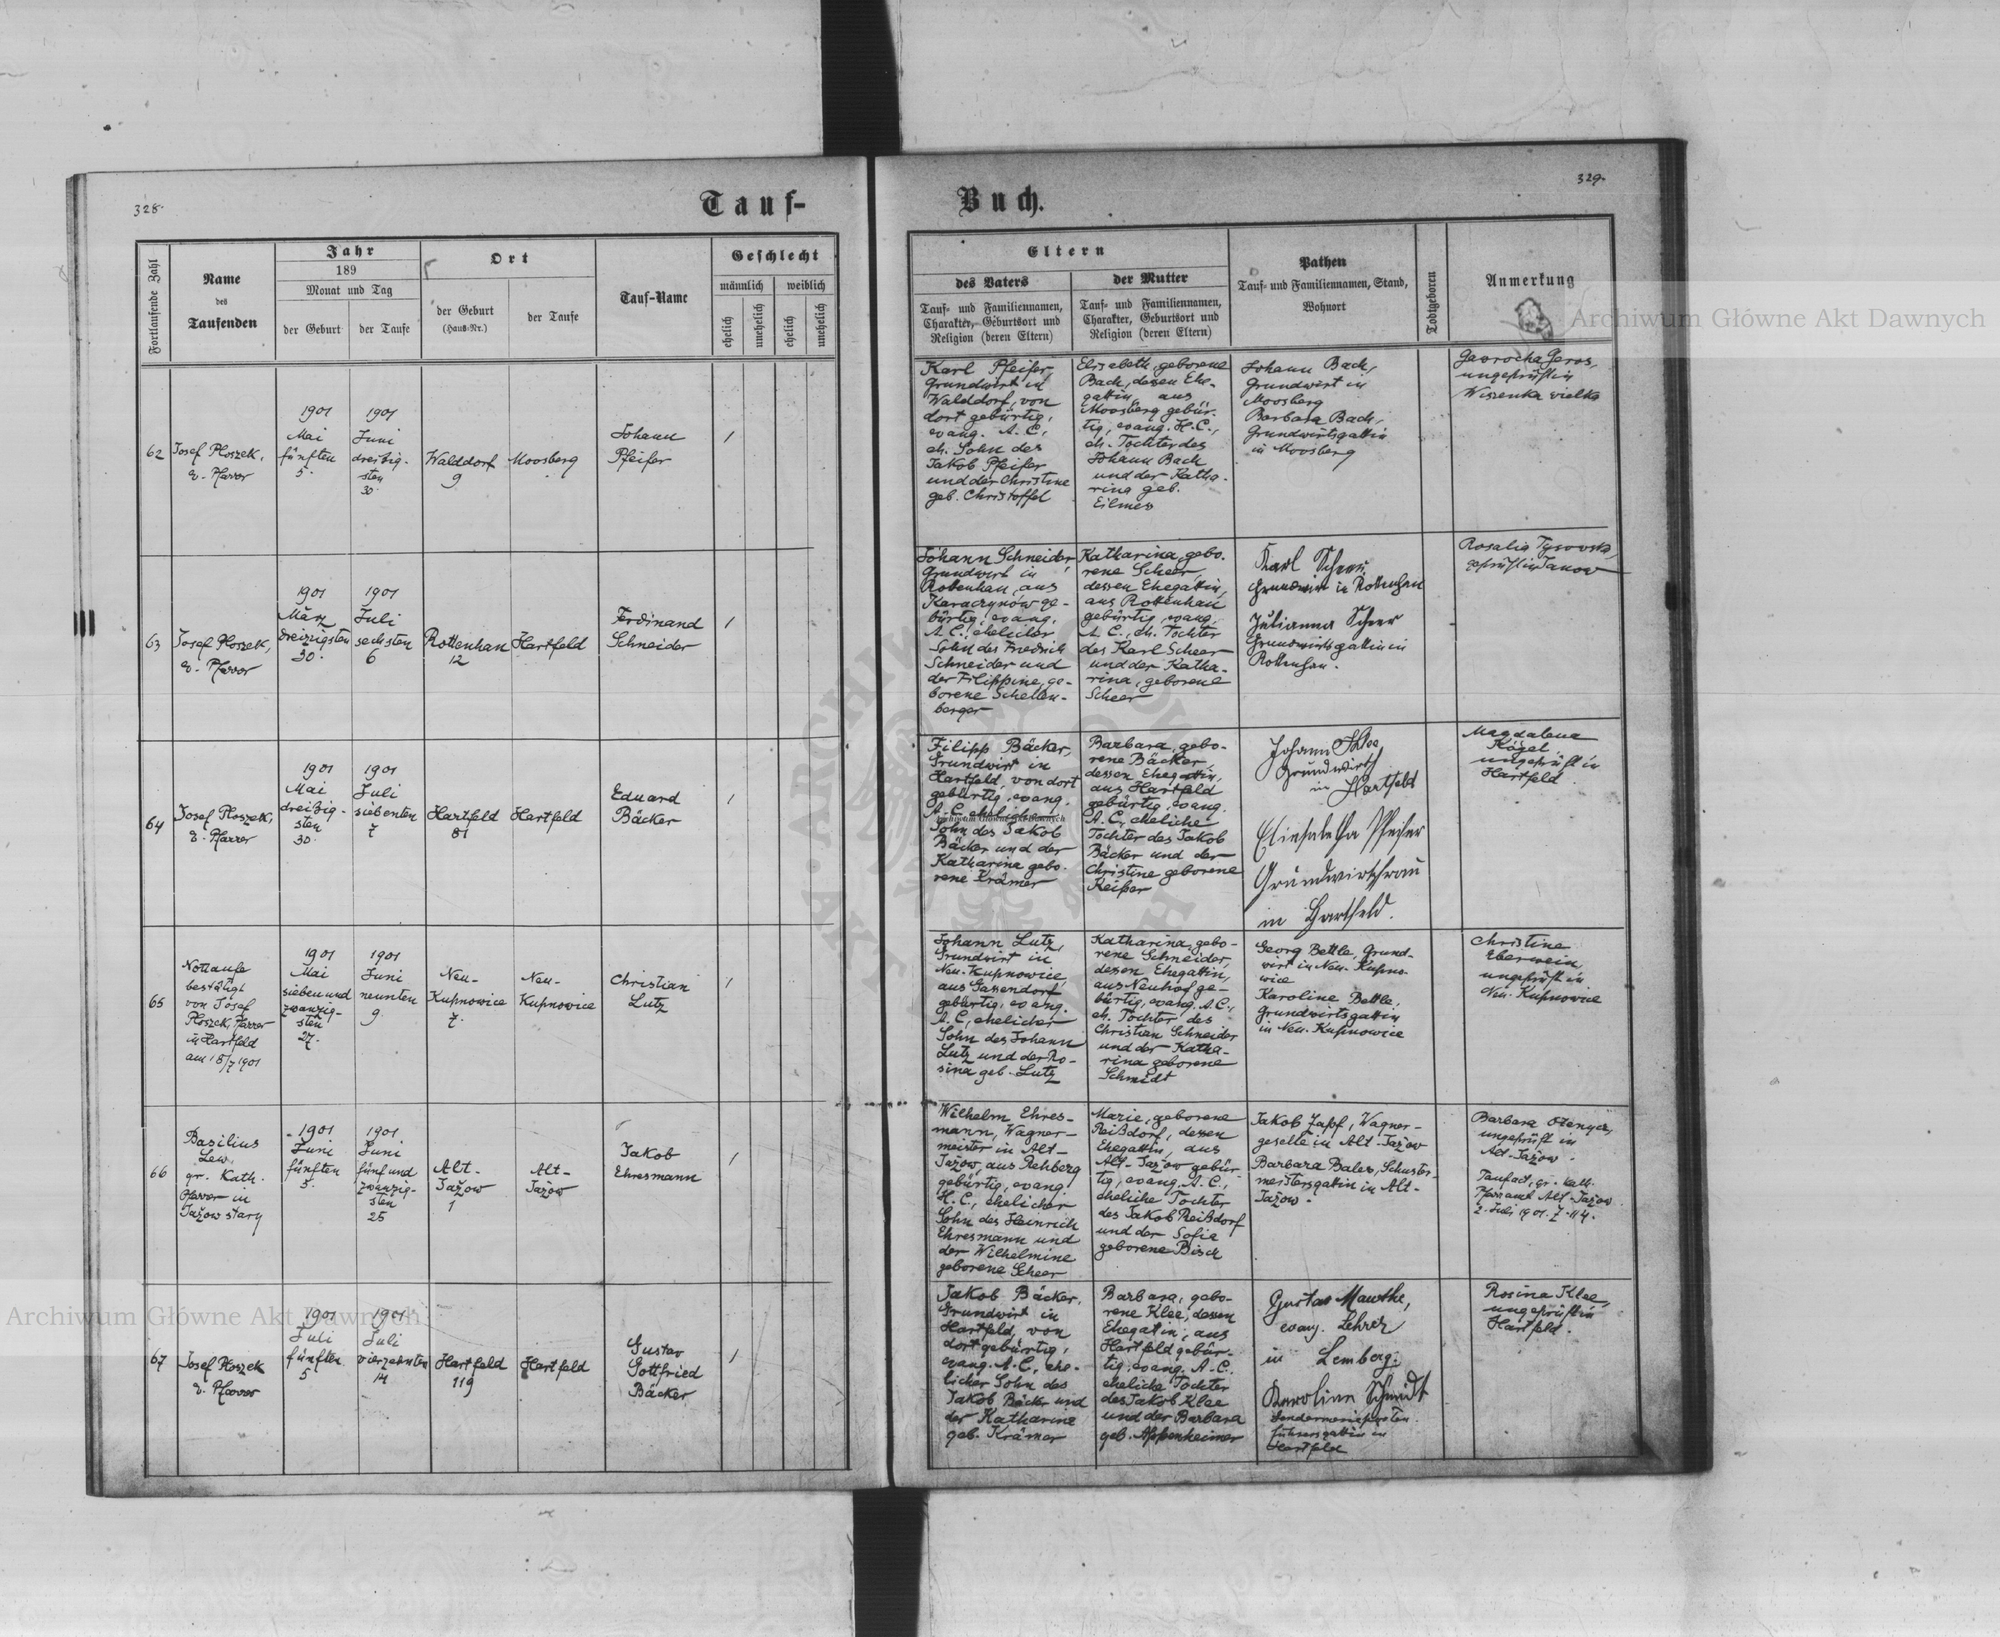 328.
Tauf-
Buch.
329.
Fortlaufende Zahl
Name
des
Taufenden
Jahr
189
Monat und Tag
der Geburt
der Taufe
Ort
der Geburt
(Haus-Nr.)
der Taufe
Tauf-Name
Geschlecht
männlich
weiblich
ehelich
unehelich
ehelich
unehelich
Eltern
des Vaters
Tauf- und Familiennamen,
Charakter, Geburtsort und
Religion (deren Eltern)
der Mutter
Tauf- und Familiennamen,
Charakter, Geburtsort und
Religion (deren Eltern)
Pathen
Tauf- und Familiennamen, Stand,
Wohnort
Todtgeboren
Anmerkung
Archiwum Główne Akt Dawnych
62
Josef Ploszek,
e. Pfarrer
1901
Mai
fünften
5.
1901
Juni
dreißig-
sten
30.
Walddorf
9
Moosberg
Johann
Pfeifer
1
Karl Pfeifer,
Grundwirt in
Walddorf, von
dort gebürtig,
evang. A. C.,
eh. Sohn des
Jakob Pfeifer
und der Christine
geb. Christoffel
Elisabeth, geborene
Bach, dessen Ehe-
gattin, aus
Moosberg gebür-
tig, evang. H.C.,
eh. Tochter des
Johann Bach
und der Katha-
rina geb.
Eilmes
Johann Bach,
Grundwirt in
Moosberg
Barbara Bach,
Grundwirtsgattin
in Moosberg
ungeprüft in
Wiszenka wielka
63
Josef Ploszek,
e. Pfarrer
1901
März
dreizigsten
30.
1901
Juli
sechsten
6
Rottenhan
12
Hartfeld
Ferdinand
Schneider
1
Johann Schneider,
Grundwirt in
Rottenhan, aus
Karaczynów ge-
bürtig, evang.
A. C., ehelicher
Sohn des Friedrich
Schneider und
der Filippine, ge-
borene Schellen-
berger
Katharina, gebo-
rene Scheer,
dessen Ehegattin,
aus Rottenhan
gebürtig, evang.
A. C., eh. Tochter
des Karl Scheer
und der Katha-
rina, geborene
Scheer
Karl Scheer,
Grundwirt in Rottenhan
Julianna Scheer
Grundwirtsgattin in
Rottenhan.
Rosalia Tysovska,
geprüft in Janow
64
Josef Ploszek,
e. Pfarrer
1901
Mai
dreißig-
sten
30.
1901
Juli
siebenten
7
Hartfeld
81
Hartfeld
Eduard
Bäcker
1
Filipp Bäcker,
Grundwirt in
Hartfeld, von dort
gebürtig, evang.
A. C., ehelicher
Sohn des Jakob
Bäcker und der
Katharina gebo-
rene Krämer
Barbara, gebo-
rene Bäcker,
dessen Ehegattin,
aus Hartfeld
gebürtig, evang.
A. C., eheliche
Tochter des Jakob
Bäcker und der
Christine geborene
Keiper
Johann Klee,
Grundwirth
in Hartfeld
Elisabetha Pfeifer
Grundwirthfrau
in Hartfeld.
Magdalena
Kögel,
ungeprüft in
Hartfeld.
65
Nottaufe
bestätigt
von Josef
Ploszek, Pfarrer
in Hartfeld
am 15/7 1901
1901
Mai
sieben und
zwanzig-
sten
27.
1901
Juni
neunten
9
Neu-
Kupnowice
7.
Neu-
Kupnowice
Christian
Lutz
1
Johann Lutz,
Grundwirt in
Neu-Kupnowice,
aus Gassendorf
gebürtig, evang.
A. C., ehelicher
Sohn des Johann
Lutz und der Ro-
sina geb. Lutz
Katharina, gebo-
rene Schneider,
dessen Ehegattin,
aus Neuhof ge-
bürtig, evang. A. C.,
eh. Tochter des
Christian Schneider
und der Katha-
rina geborene
Schmidt
Georg Bettle, Grund-
wirt in Neu-Kupno-
wice
Karoline Bettle,
Grundwirtsgattin
in Neu-Kupnowice
Christine
Eberwein,
ungeprüft in
Neu-Kupnowice
66
Basilius
Lew,
gr. Kath.
Pfarrer in
Jažow stary
1901
Juni
fünften
5.
1901
Juni
fünf und
zwanzig-
sten
25
Alt-
Jažow
1
Alt-
Jažow
Jakob
Ehresmann
1
Wilhelm Ehres-
mann, Wagner-
meister in Alt-
Jažow, aus Rehberg
gebürtig, evang.
H. C., ehelicher
Sohn des Heinrich
Ehresmann und
der Wilhelmine
geborene Scheer
Marie, geborene
Reißdorf, dessen
Ehegattin, aus
Alt-Jažow gebür-
tig, evang. A. C.,
eheliche Tochter
des Jakob Reißdorf
und der Sofie
geborene Bisch
Jakob Zapf, Wagner-
geselle in Alt-Jažow
Barbara Bales, Schuster-
meistersgattin in Alt-
Jažow.
Barbara
ungeprüft in
Alt-Jažow.
Taufact, gr. kath.
Pfarramt Alt-Jažow
2. Juli 1901. Z. 114.
67
Josef Ploszek
e. Pfarrer
1901
Juli
fünften
5
1901
Juli
vierzehnten
14
Hartfeld
119
Hartfeld
Gustav
Gottfried
Bäcker
1
Jakob Bäcker,
Grundwirt in
Hartfeld, von
dort gebürtig,
evang. A. C., ehe-
licher Sohn des
Jakob Bäcker und
der Katharine
geb. Krämer
Barbara, gebo-
rene Klee, dessen
Ehegatin, aus
Hartfeld gebür-
tig, evang. A. C.
eheliche Tochter
des Jakob Klee
und der Barbara
geb. Appenheimer
Gustav Mauthe,
evang. Lehrer
in Lemberg.
Karolina Schmidt
führersgattin in
Hartfeld
Rosina Klee,
ungeprüft in
Hartfeld.
Archiwum Główne Akt Dawnych